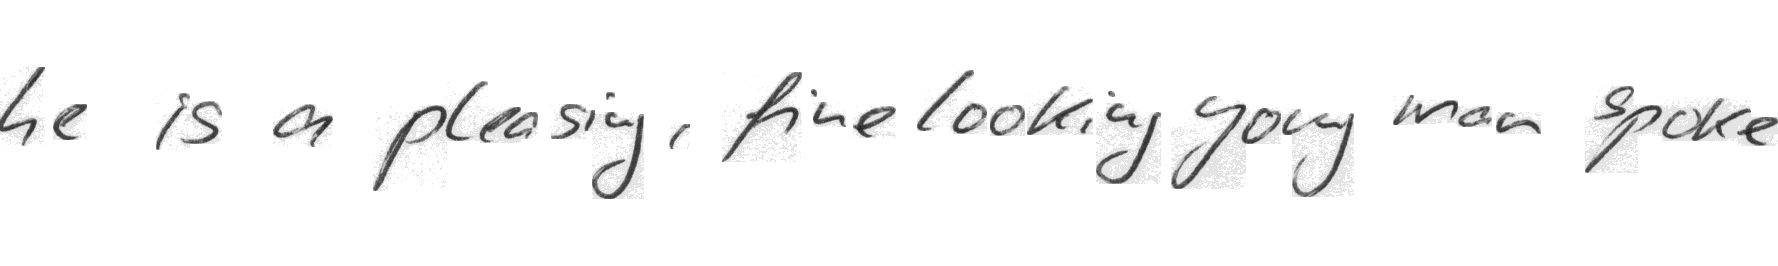 he is a pleasing, fine looking young man spoke